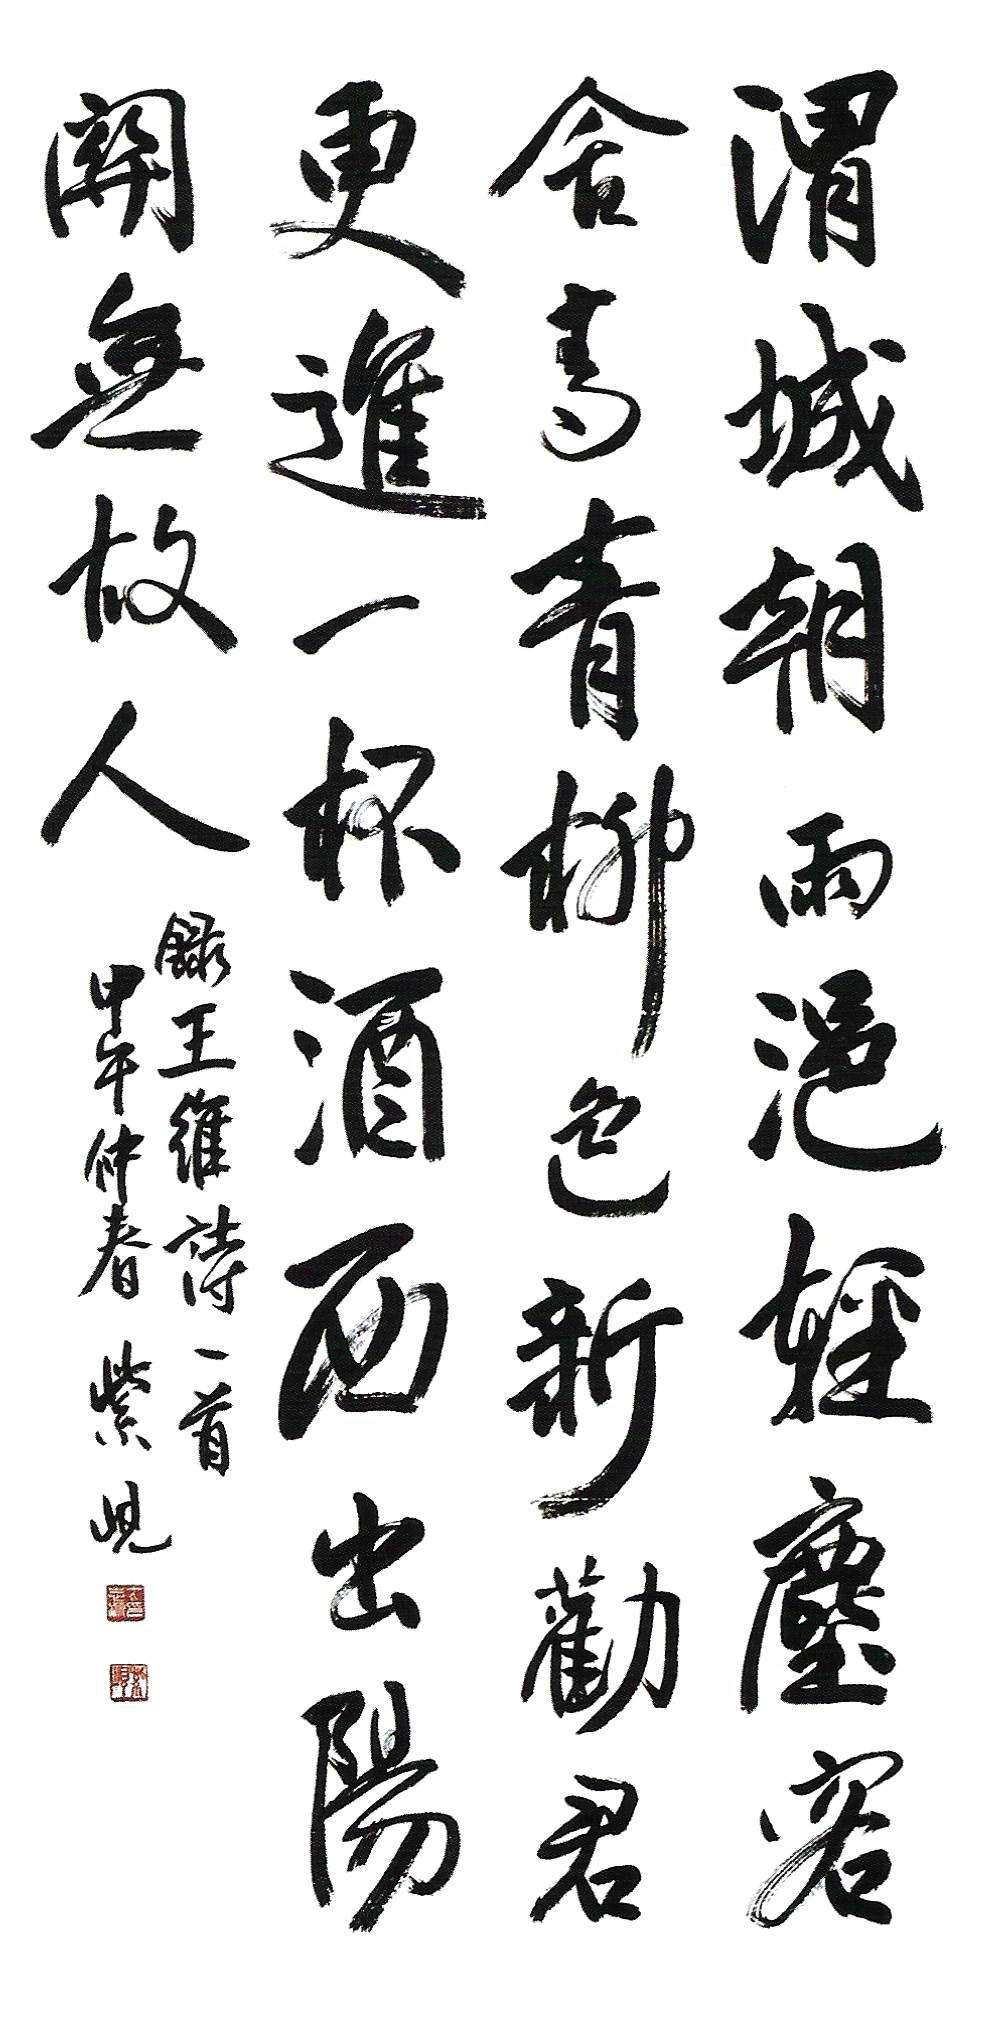 渭城朝雨浥輕塵客
舍青青柳色新勸君
更進一杯酒西出陽
關無故人
錄王維詩一首
甲午仲春 紫峴